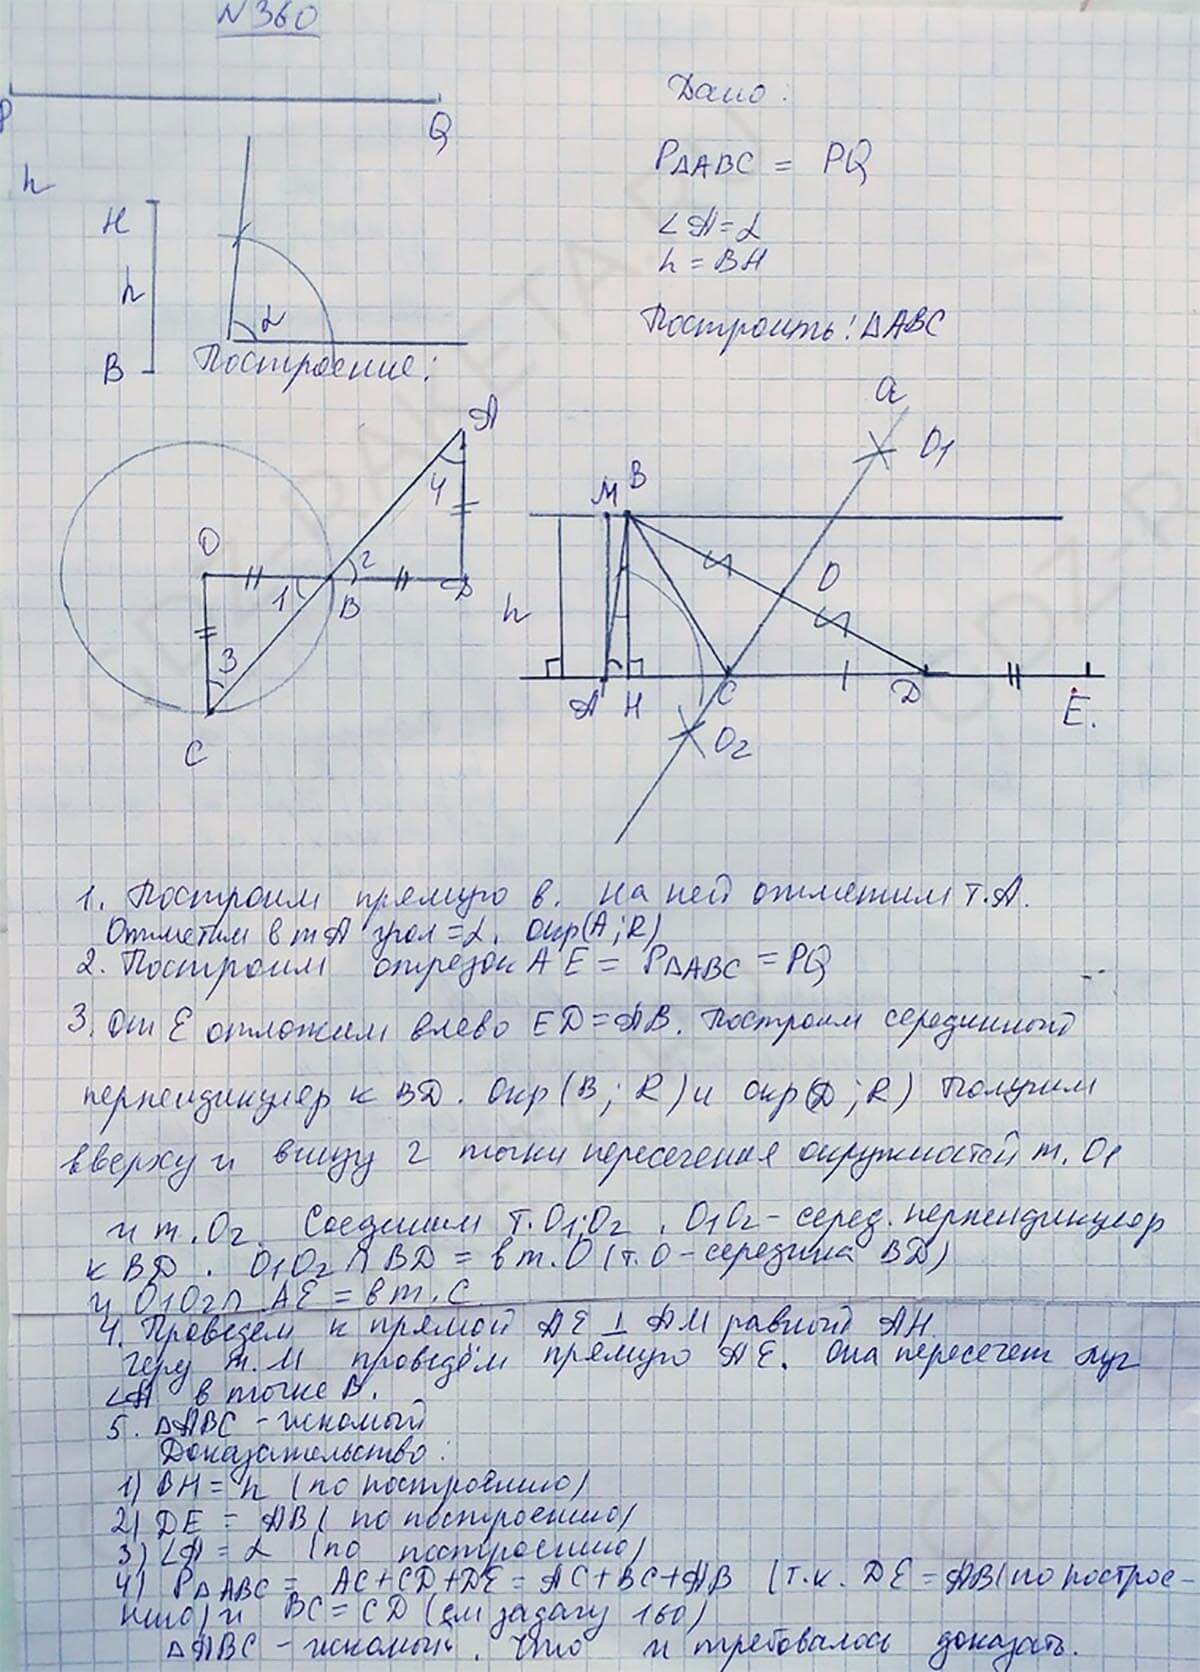 N 360
P Q
Дано:
P∆ABC = PQ
∠A = α
h = BH
Построить: ∆ABC
h
H
h
B
α
Построение:
A
4
O
1 2
B
D
3
C
a
O1
M B
O
h
A H C D E.
O2
1. Построим прямую в. На ней отметим т. A.
Отметим в т A угол = α. Окр(A; R)
2. Построим отрезок AE = P∆ABC = PQ
3. От E отложим влево ED = AB. Построим серединный
перпендикуляр к BD. Окр(B; R) и окр(D; R) Получим
вверху и внизу 2 точки пересечения окружностей т. O1
и т. O2. Соединим т. O1; O2. O1O2 - серед. перпендикуляр
к BD. O1O2 ∩ BD = в т. O (т. O - середина BD)
и O1O2 ∩ AE = в т. C
4. Проведём к прямой AE ⊥ AM равной AH.
Через т. M проведём прямую AE. Она пересечет луч
∠A в точке B.
5. ∆ABC - искомый
Доказательство:
1) BH = h (по построению)
2) DE = AB (по построению)
3) ∠A = α (по построению)
4) P∆ABC = AC + CD + DE = AC + BC + AB (т.к. DE = AB (по построе-
нию) и BC = CD (см задачу 160)
∆ABC - искомый. Что и требовалось доказать.